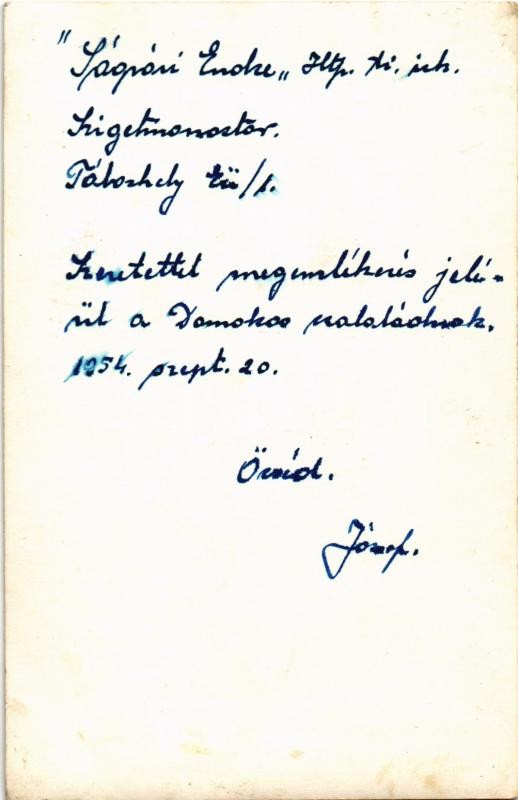 "Ságvári Endre" Htp. ti. isk.
Szigetmonostor.
Táborhely Eü/1.
Szeretettel megemlékezés jelé-
ül a Domokos családnak.
1954. szept. 20.
Öcséd.
József.